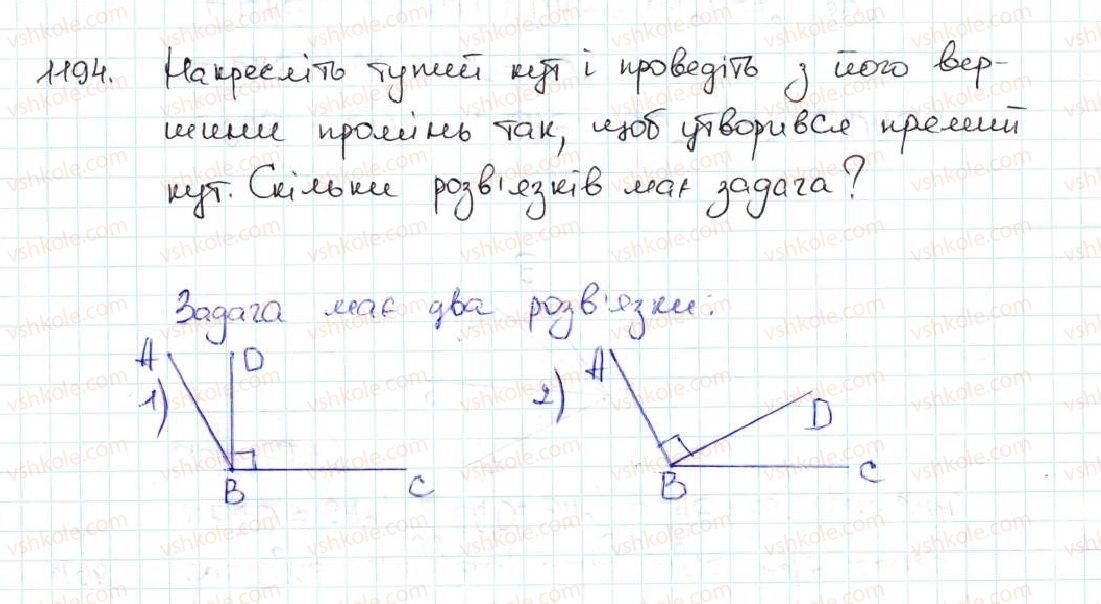 1194. Накресліть тупий кут і проведіть з його вер-
шини промінь так, щоб утворився прямий
кут. Скільки розв'язків має задача?
Задача має два розв'язки:
A D
1)
B C
A
2) D
B C
vshkole.com